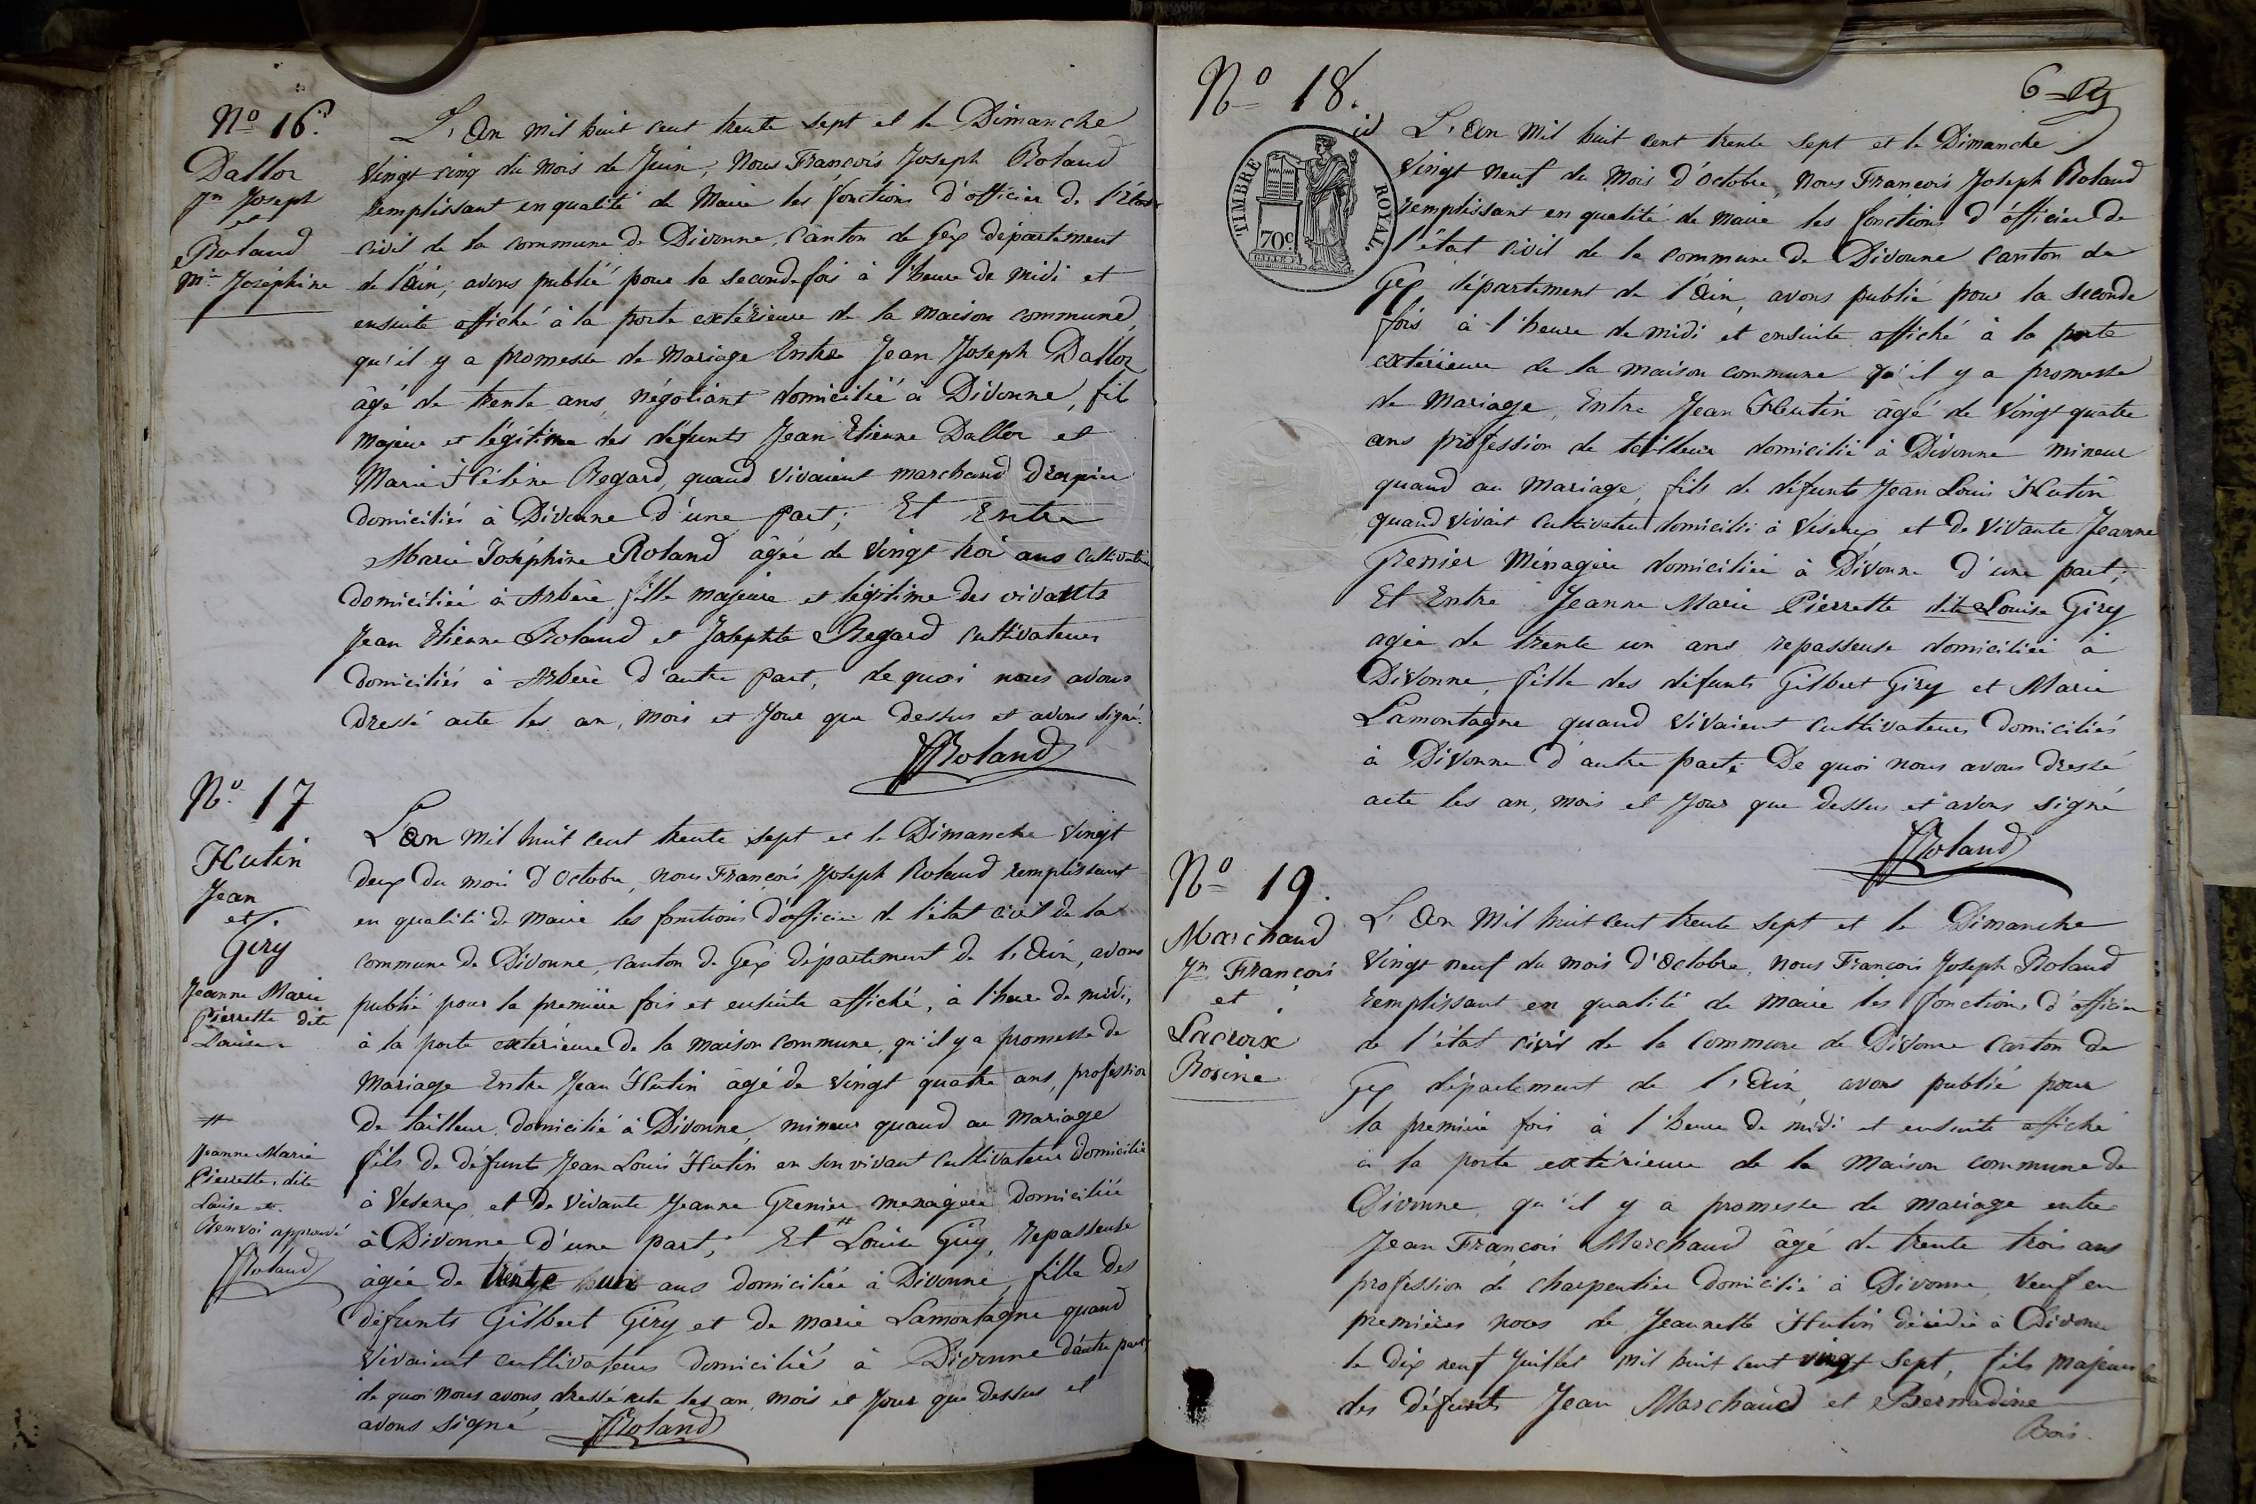 No 16.
Dallor
Jn Joseph
et
Roland
Mie Joséphine
L'An mil huit cent trente sept et le Dimanche
vingt cinq du mois de Juin, Nous François Joseph Roland
remplissant en qualité de Maire les fonctions d'officier de l'état
civil de la commune de Divonne, Canton de Gex département
de l'Ain, avons publié pour la seconde fois à l'heure de midi et
ensuite affiché à la porte extérieure de la maison commune,
qu'il y a promesse de Mariage Entre Jean Joseph Dallor
âgé de trente ans, négotiant domicilié à Divonne, fils
majeur et légitime des défunts Jean Etienne Dallor et
Marie Hélène Regard, quand vivaient marchand Drapier
domiciliés à Divonne d'une part; Et Entre
Marie Joséphine Roland âgée de vingt troi ans Cultivatrice
domiciliée à Arbère, fille majeure et légitime des vivants
Jean Etienne Roland et Josephte Regard cultivateurs
domiciliés à Arbère d'autre part, de quoi nous avons
dressé acte les an, mois et Jour que dessus et avons signé.
Roland
No 17
Hutin
Jean
et
Giry
Jeanne Marie
Pierrette dite
Louise
L'an mil huit cent trente sept et le Dimanche vingt
deux du mois d'Octobre, nous François Joseph Roland remplissant
en qualité de maire les fonctions d'officier de l'état civil de la
commune de Divonne, canton de Gex département de l'Ain, avons
publié pour la première fois et ensuite affiché, à l'heure de midi,
à la porte extérieure de la maison commune, qu'il y a promesse de
Mariage Entre Jean Hutin âgé de vingt quatre ans, profession
de tailleur domicilié à Divonne, mineur quand au mariage
fils de défunt Jean Louis Hutin en son vivant cultivateur domicilié
à Vesenex, et de vivante Jeanne Grenier menagère domiciliée
à Divonne d'une part; Et # Louise Giry, repasseuse
âgée de trente un ans domiciliée à Divonne, fille des
défunts Gilbert Giry et de marie Lamontagne quand
vivaient cultivateurs domicilié à Divonne d'autre part,
de quoi nous avons dressé acte les an, mois et Jour que dessus et
avons signé Roland
#
Jeanne Marie
Pierrette dite
Louise et
Renvoi approuvé
Roland
6
No 18.
TIMBRE ROYAL
70c.
L'An Mil huit cent trente sept et le Dimanche
vingt neuf du Mois d'Octobre, Nous François Joseph Roland
remplissant en qualité de maire les fonctions d'officier de
l'état civil de la commune de Divonne canton de
Gex département de l'Ain, avons publié pour la seconde
fois à l'heure de midi et ensuite affiché à la porte
extérieure de la maison commune qu'il y a promesse
de Mariage, Entre Jean Hutin âgé de vingt quatre
ans profession de tailleur domicilié à Divonne mineur
quand au Mariage, fils de défunts Jean Louis Hutin
quand vivait cultivateur domicilié à Vésenex, et de vivante Jeanne
Grenier Ménagère domiciliée à Divonne d'une part;
Et Entre Jeanne Marie Pierrette dite Louise Giry
agée de trente un ans repasseuse domiciliée à
Divonne, fille des défunts Gilbert Giry et Marie
Lamontagne quand vivaient cultivateurs domiciliés
à Divonne d'autre part. De quoi nous avons dressé
acte les an, mois et Jour que dessus et avons signé
Roland
No 19.
Marchand
Jn François
et
Lacroix
Rosine
L'An Mil huit cent trente sept et le Dimanche
vingt neuf du mois d'Octobre, nous François Joseph Roland
remplissant en qualité de maire les fonctions d'officier
de l'état civil de la Commune de Divonne canton de
Gex département de l'Ain, avons publié pour
la première fois à l'heure de midi et ensuite affiché
à la porte extérieure de la Maison commune de
Divonne, qu'il y a promesse de mariage entre
Jean François Marchand âgé de trente trois ans
profession de charpentier domicilié à Divonne, veuf en
premières noces de Jeannette Hutin décédée à Divonne
le dix neuf Juillet mil huit cent vingt sept, fils majeur
des défunts Jean Marchand et Bernadine
Bois.